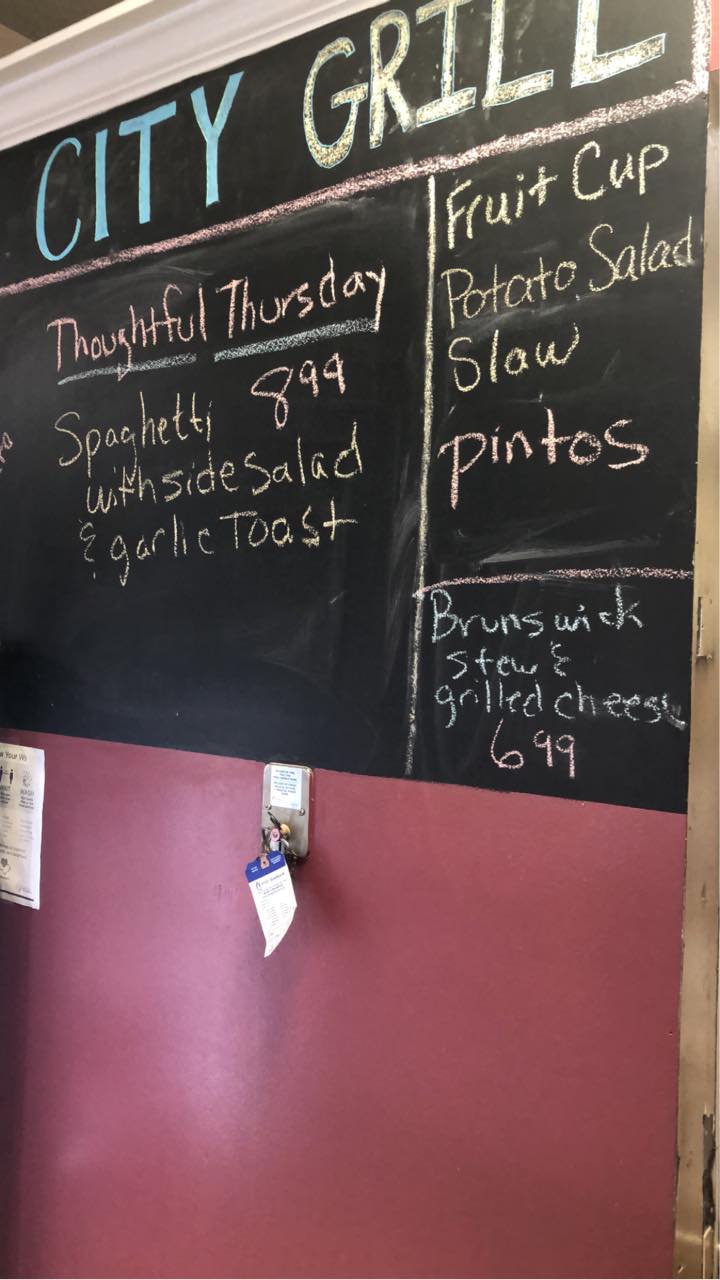 CITY GRILL
Thoughtful Thursday
Spaghetti 899
with side Salad
& garlic Toast
Fruit Cup
Potato Salad
Slaw
pintos
Brunswick
stew &
grilled cheese
699